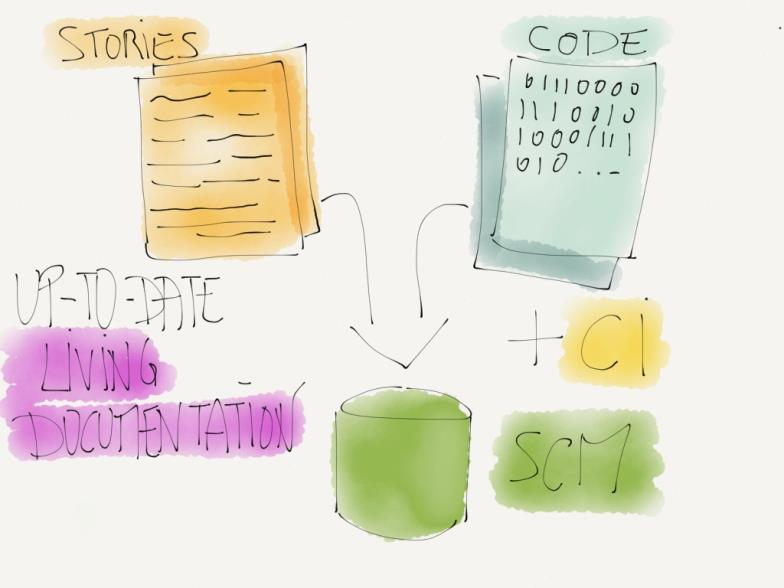 STORIES
CODE
01110000
11110010
1000/111
010...
UP-TO-DATE
LIVING
DOCUMENTATION
+ CI
SCM